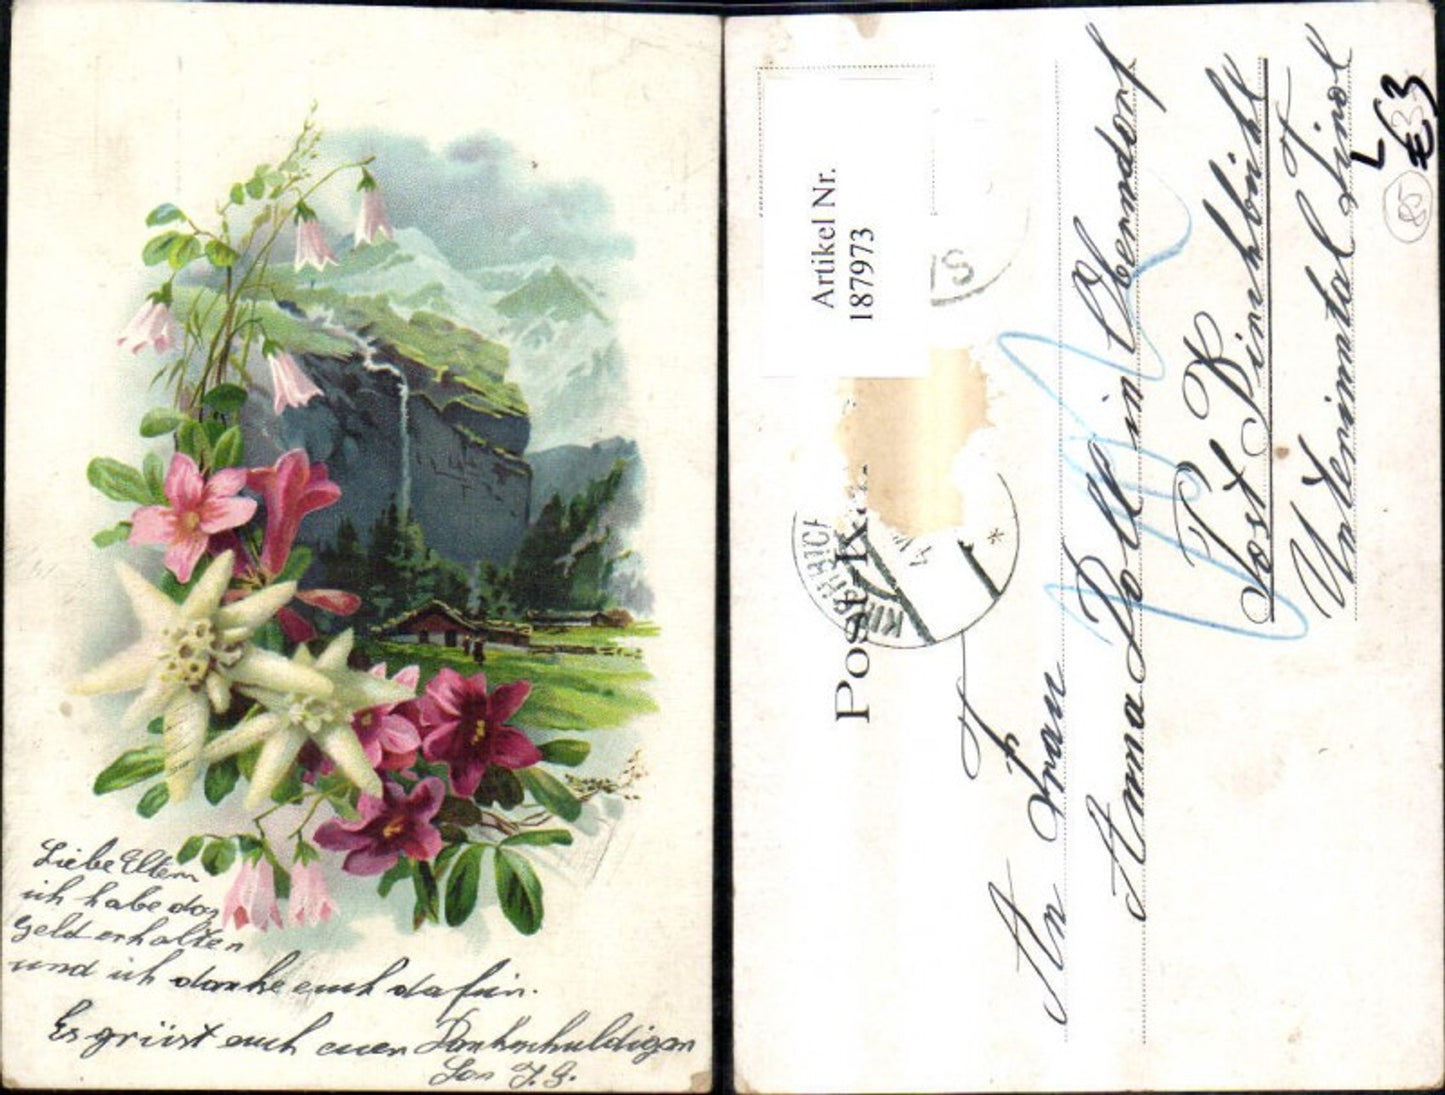 Liebe Eltern
ich habe das
Geld erhalten
und ich danke euch dafür.
Es grüst euch euer Dankschuldigen
Son J. G.
Artikel Nr.
187973
Post-K
KIRCHBICH
An Frau
Anna Poll in Oberndorf
Post Kirchbichl
Unterinntal Tirol
L
€ 3
85